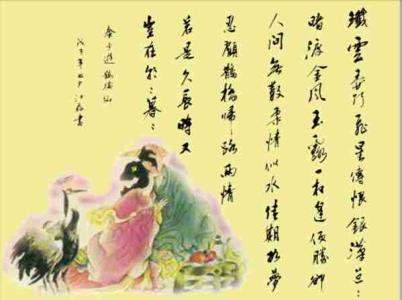 纖雲弄巧飛星傳恨銀漢迢：
暗渡金風玉露一相逢便勝卻
人間無數柔情似水佳期如夢
忍顧鵲橋歸路兩情
若是久長時又
豈在朝：暮：
秦少游鵲橋仙